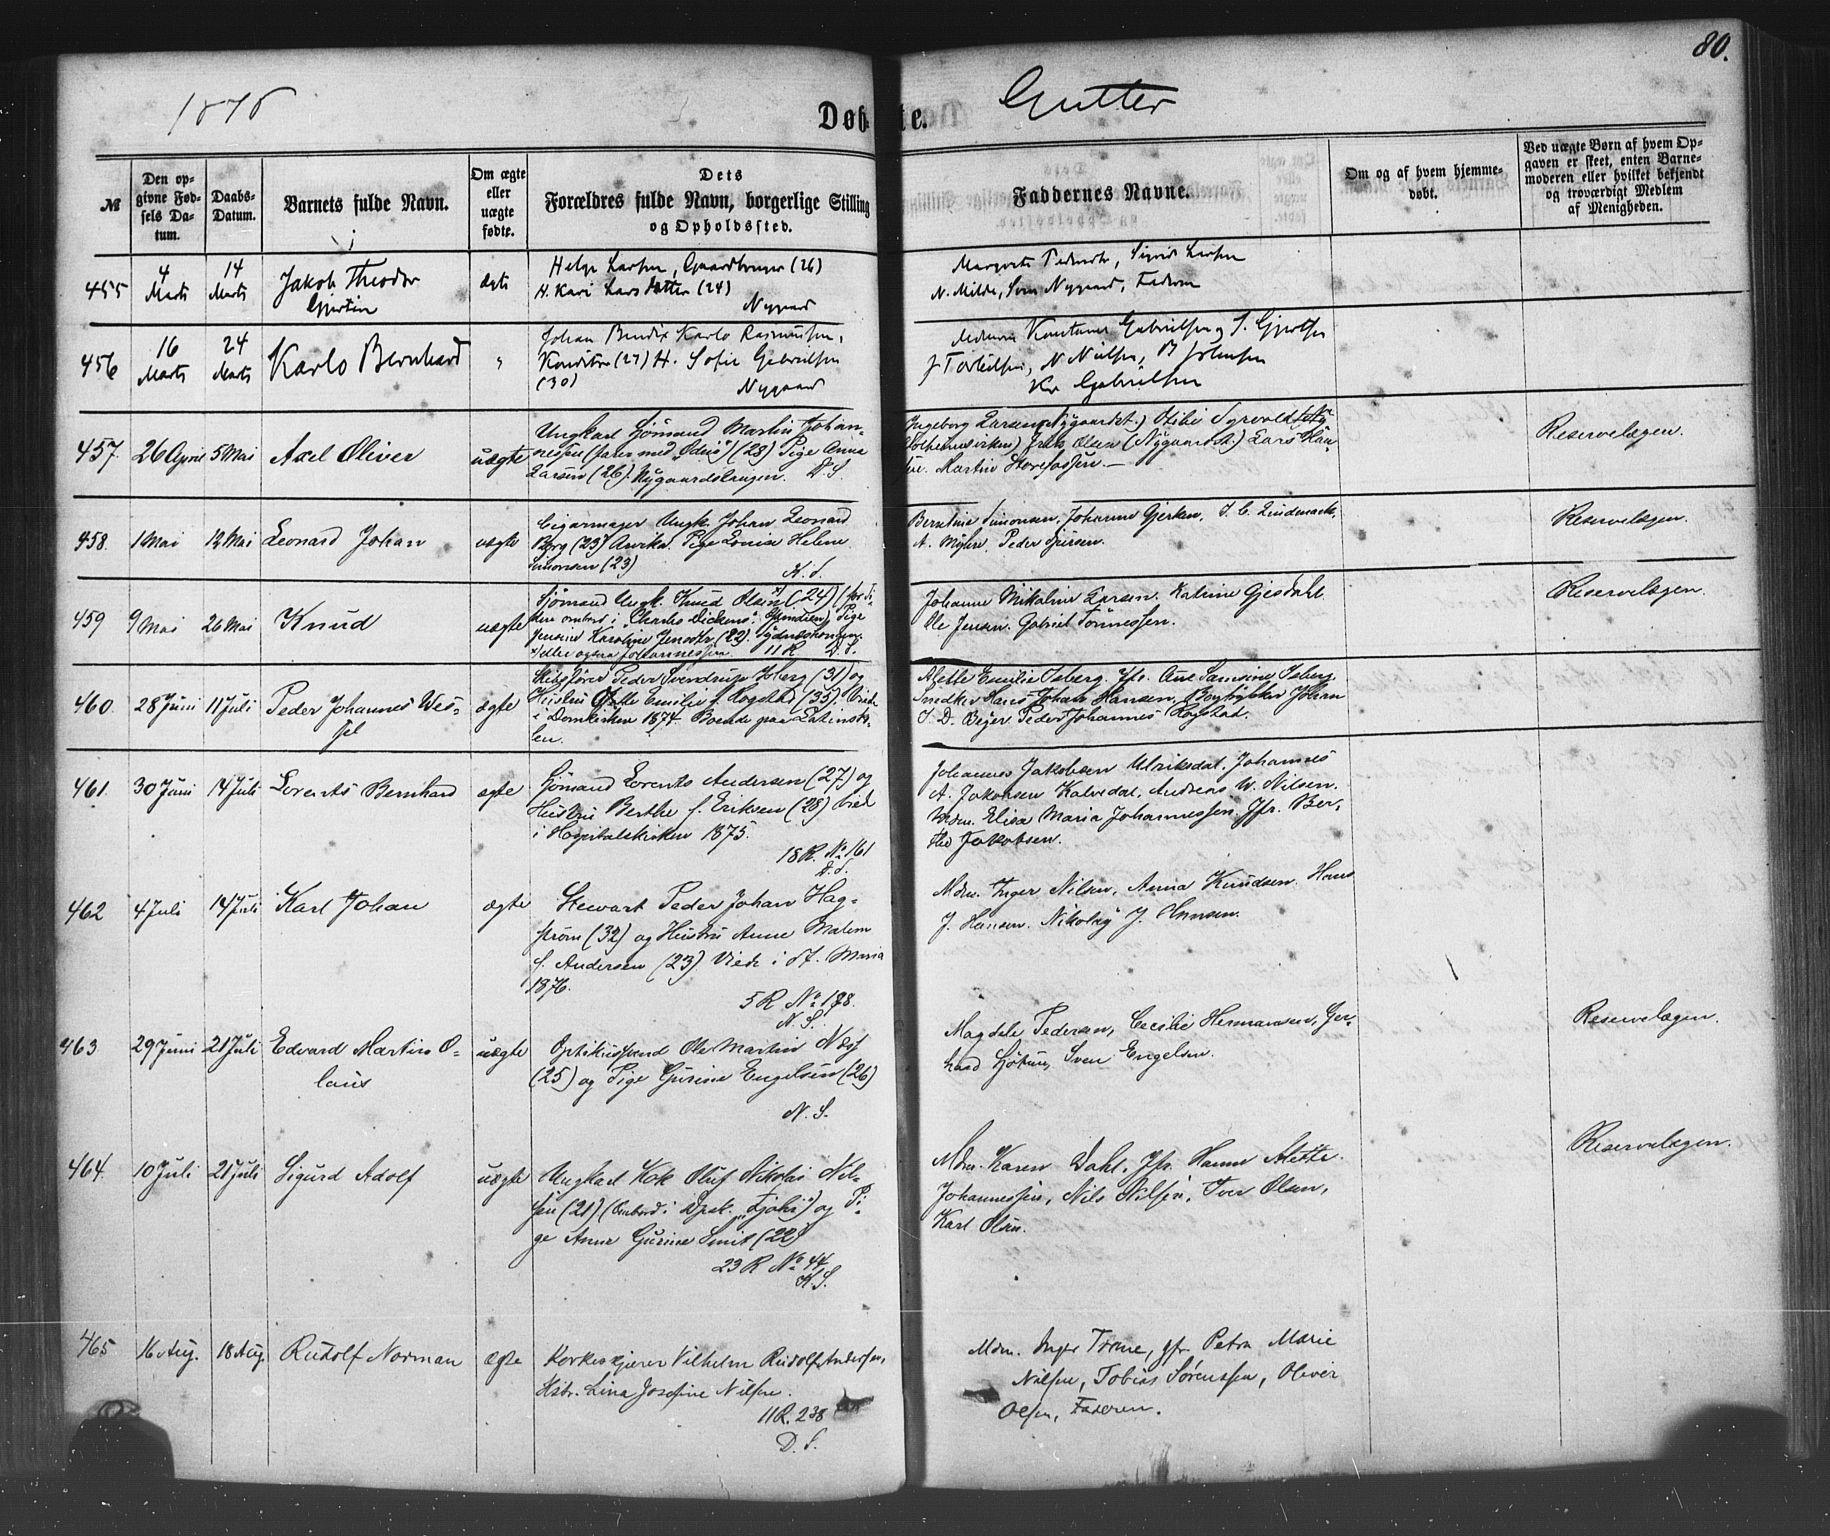 80.
1878
Døbte.
Gutter
№
Den opgivne Fødsels Datum.
Daabs-Datum.
Barnets fulde Navn.
Om ægte eller uægte fødte.
Dets Forældres fulde Navn, borgerlige Stilling og Opholdssted.
Faddernes Navne.
Om og af hvem hjemmedøbt.
Ved uægte Børn af hvem Opgaven er skeet, enten Barnemoderen eller hvilket bekjendt og troværdigt Medlem af Menigheden.
455 4 Marts 14 Marts Jakob Theodor Gjertin ægte
Helge Larsen, Gaardbruger (26)
H. Kari Larsdatter (24)
Nygaard
Margrete Pedersdtr, Sigrid Larsen
N. Milde, Sven Nygaard, Faderen
456 16 Marts 24 Marts Karlo Bernhard "
Johan Bendix Karlo Rasmussen,
Konditor (27) H. Sofie Gabrielsen
(30)
Nygaard
Konstance Gabrielsen, S. Gjertsen
J Torkildsen, N Nilsen, B Johnsen
Kr Gabrielsen
457. 26 April 5 Mai Axel Oliver uægte
Ungkarl Sjømand Martin Johan-
nessen (farer med "Odin") (23) Pige Anna
Larsen (26). Nygaardslangen. D. S.
Ingeborg Larsen (Nygaardst.) Otilie
Olsen (Nygaardst.) Lars Han-
sen. Martin Storefossen. —
Reservelægen.
458. 1 Mai 12 Mai Leonard Johan uægte
Cigarmager Ungk. Johan Leonard
Berg (23) Arvika. Pige Louise Helene
Simonsen (23)
K. S.
Berntine Simonsen, Johanne Gjerken, J. C. Lindemark,
A. Myhre. Peder Iversen.
Reservelægen.
459 9 Mai 26 Mai Knud uægte
Sjømand Ungk. Knud Olsen *) (24) (for Ti-
den ombord i "Charles Dickens". Ostindien) Pige
Jensine Karoline Jensdtr. (22). Sydnæskongen.
*) eller ogsaa Johannessen. 11 R D. S.
Johanne Mikaline Larsen. Katrine Gjesdahl.
Ole Jensen. Gabriel Tønnessen.
Reservelægen.
460. 28 Juni 11 Juli Peder Johannes Wes-
sel ægte
Skibsfører Peder Svendrup Isberg (31) og
Hustru Alette Emilie f. Rogstad (35). Viede
i Domkirken 1874. Boende paa Latinsko-
len.
Alette Emilie Isberg. Jfr. Ane Samsine Isberg.
Snedker Hans Johan Hansen, Bogtrykker Johan
S. D. Beyer. Peder Johannes Rogstad.
461. 30 Juni 14 Juli Lorents Bernhard ægte
Sjømand Lorents Andersen (27) og
Hustru Berthe f. Eriksen (28) Viede
i Hospitalskirken 1875.
18 R. No. 161
D. S.
Johannes Jakobsen Ulriksdal, Johannes
A. Jakobsen Kalvedal, Andreas W. Nilsen.
Mdm. Elisa Maria Johannessen. Jfr. Ber-
the Jakobsen.
462 4 Juli 14 Juli Karl Johan ægte
Stewart Peder Johan Hag-
strøm (32) og Hustru Anne Malene
f. Andersen (23) Viede i St. Maria
1876.
5 R No. 188.
N. S.
Mdm. Inger Nilsen, Anna Knudsen. Hans
J. Hansen. Nikolay J. Hansen.
463 29 Juni 21 Juli Edvard Martin O-
laus uægte
Optikussvend Ole Martin Næss
(25) og Pige Gurine Engelsen (26)
N. S.
Magdele Pedersen, Cecilie Hermansen, Ger-
hard, Sven Engelsen.
Reservelægen.
464. 10 Juli 21 Juli Sigurd Adolf uægte
Ungkarl Kok Oluf Nikolai Nil-
sen (21) (ombord i Dpsk. "Fjohi") og Pi-
ge Anne Gurine Smit (22)
23 R No. 44
K. S.
Mdm. Karen Dahl. Jfr. Hanne Alette
Johannessen, Nils Nilsen, Iver Olsen,
Karl Olsen.
Reservelægen.
465 16 Aug. 18 Aug. Rudolf Norman ægte
Korkeskjærer Vilhelm Rudolf Andersen,
Hstr. Lina Josefine Nilsen.
11 R. 238
D. S.
Mdm. Inger Trane, Jfr. Petra Marie
Nilsen, Tobias Sørensen, Oliver
Olsen, Faderen.